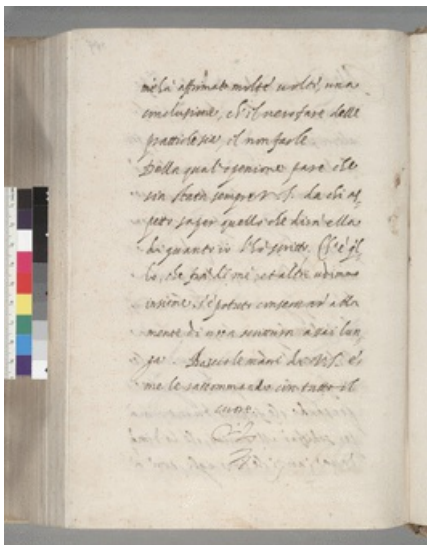 me l'à affirmato molte volte, una
conclusione, ch'il non fare delle
prattiche sia, il non farle
Della qual openione pare che
sia stata sempre V.S. da chi as-
petto saper quello che dirà ella
di quanto io l'hò scritto. Ch'è
che di me, et altri udimmo
insieme. potuto conservar' alla
mente di una scrittura assai lun-
ga. Bascio le mani di V.S. e
me le raccommando con tutto il
cuore.